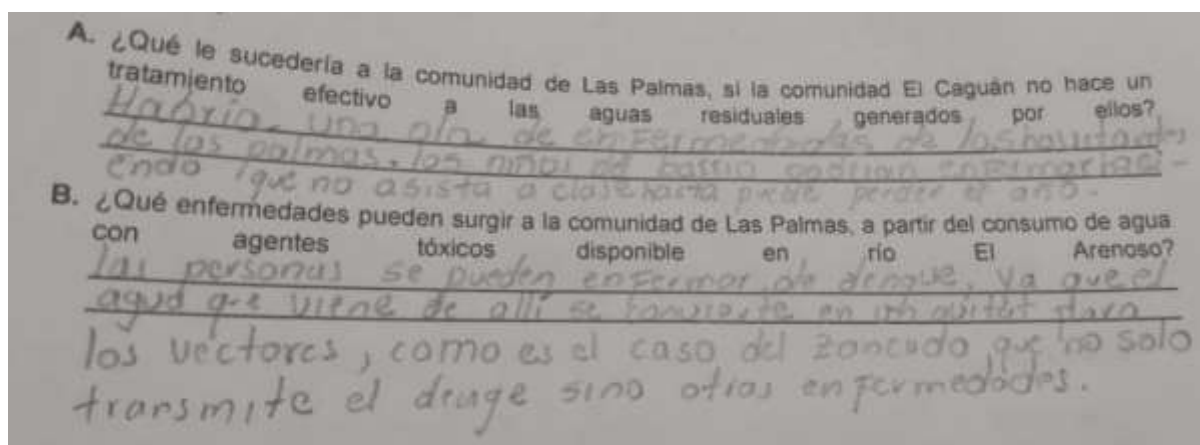 A. ¿Qué le sucedería a la comunidad de Las Palmas, si la comunidad El Caguán no hace un
tratamiento efectivo a las aguas residuales generados por ellos?
Habria una ola de enfermedades de los havitantes
de las palmas, los niños de barrio podrian enfermar
endo que no asista a clase hasta puede perder el año.
B. ¿Qué enfermedades pueden surgir a la comunidad de Las Palmas, a partir del consumo de agua
con agentes tóxicos disponible en río El Arenoso?
las personas se pueden enfermar de dengue, ya que el
agua que viene de alli se convierte en un para
los vectores, como es el caso del zancudo, que no solo
transmite el denge sino otras enfermedades.